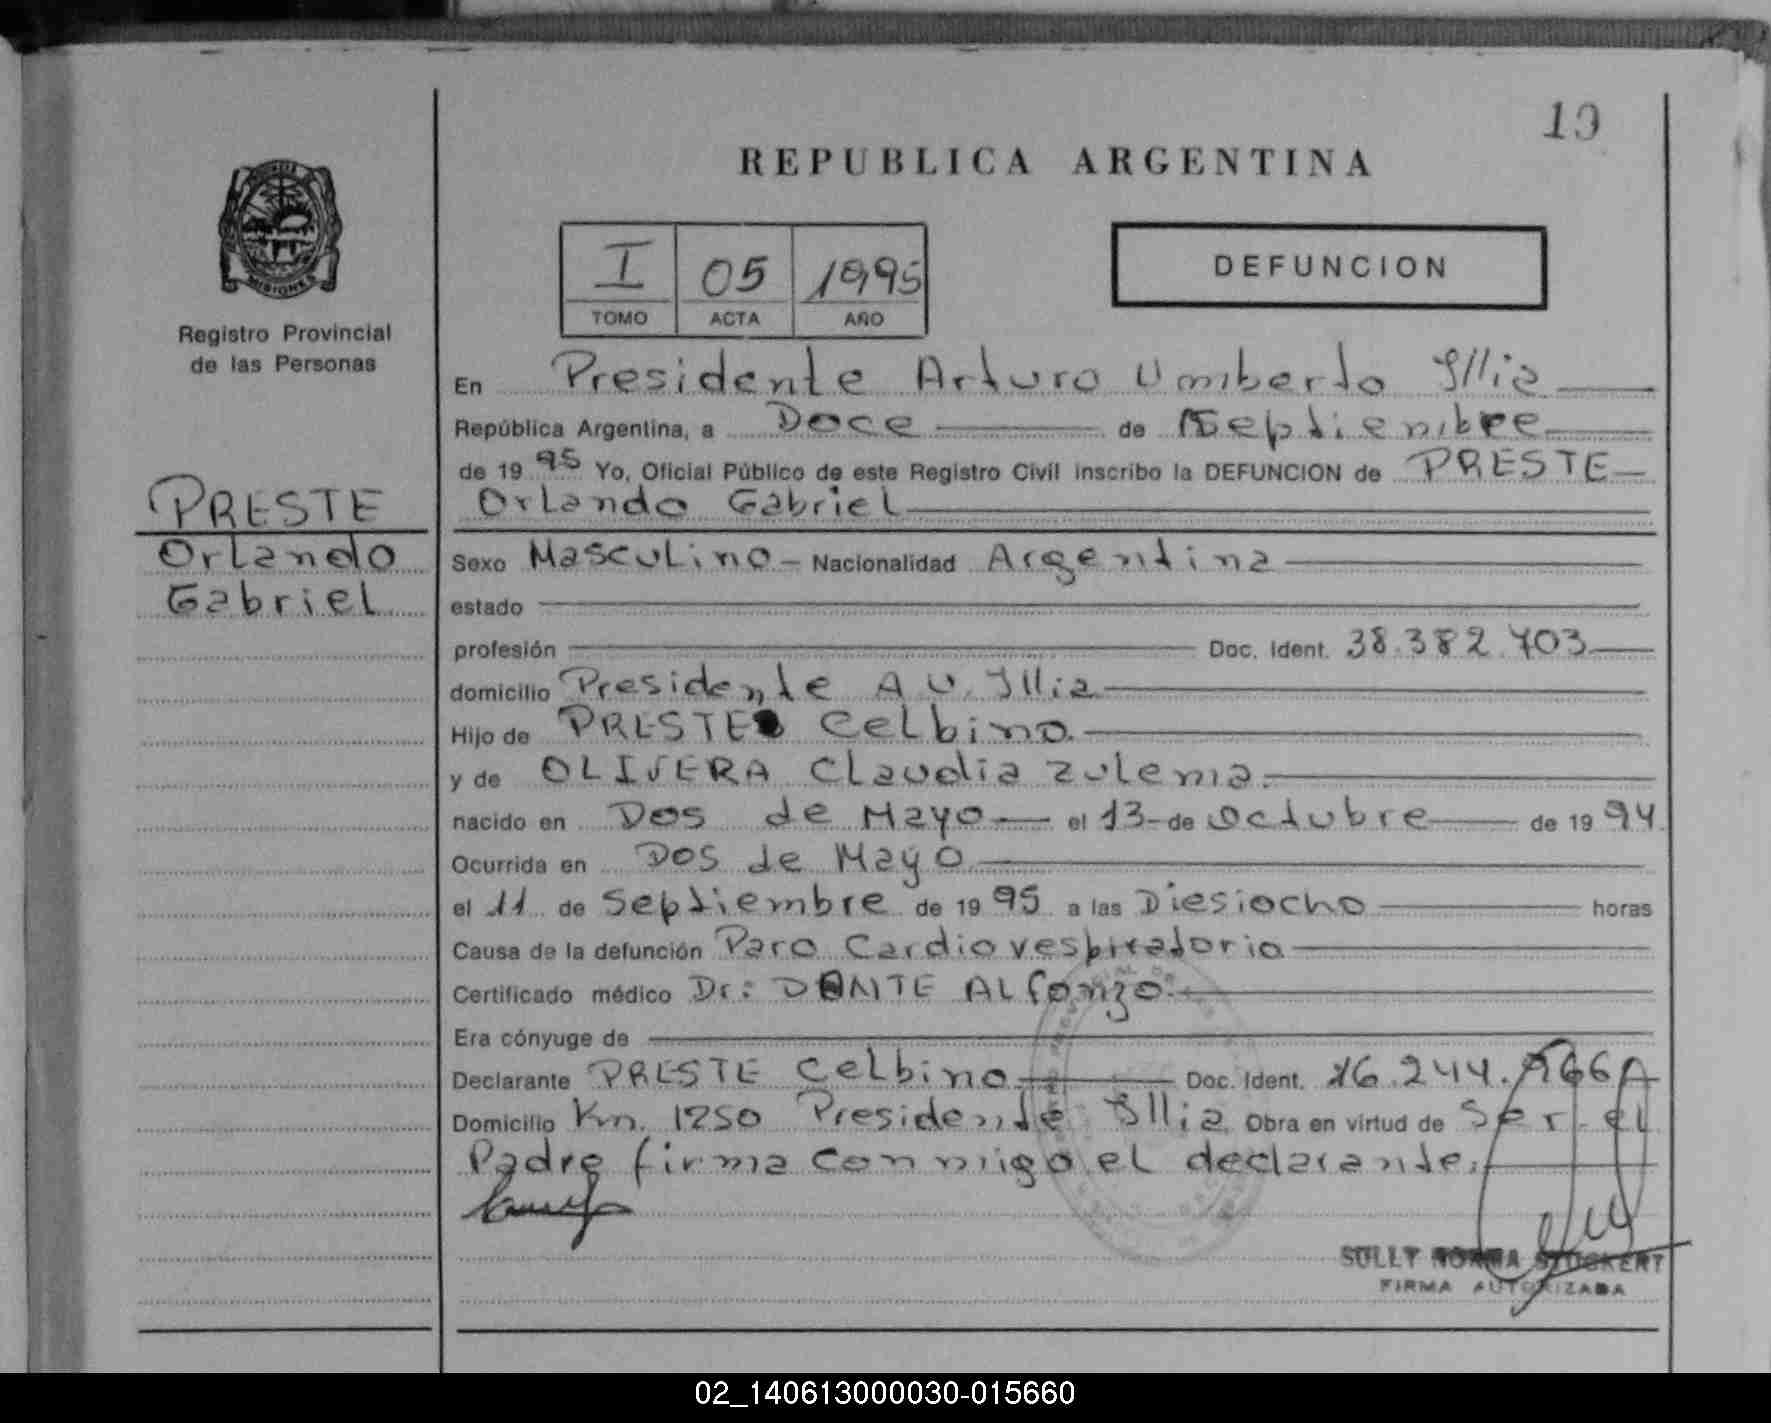 19
REPUBLICA ARGENTINA
MISIONES
Registro Provincial
de las Personas
I 05 1995
TOMO ACTA AÑO
DEFUNCION
PRESTE
Orlando
Gabriel
En Presidente Arturo Umberto Illia
República Argentina, a Doce de Septiembre
de 19 95 Yo, Oficial Público de este Registro Civil inscribo la DEFUNCION de PRESTE
Orlando Gabriel
Sexo Masculino - Nacionalidad Argentina
estado
profesión Doc. Ident. 38.382.703
domicilio Presidente A U. Illia
Hijo de PRESTE Celbino.
y de OLIVERA Claudia Zulema.
nacido en Dos de Mayo el 13 de Octubre de 19 94
Ocurrida en Dos de Mayo
el 11 de Septiembre de 19 95 a las Diesiocho horas
Causa de la defunción Paro Cardiovespiratorio
Certificado médico Dr: DANTE ALfonzo.
Era cónyuge de
Declarante PRESTE Celbino Doc. Ident. 16.244.
Domicilio Km. 1250 Presidente Illia Obra en virtud de Ser el
Padre firma conmigo el declarante.
SULLY NORMA STOCKERT
FIRMA AUTORIZADA
02_140613000030-015660